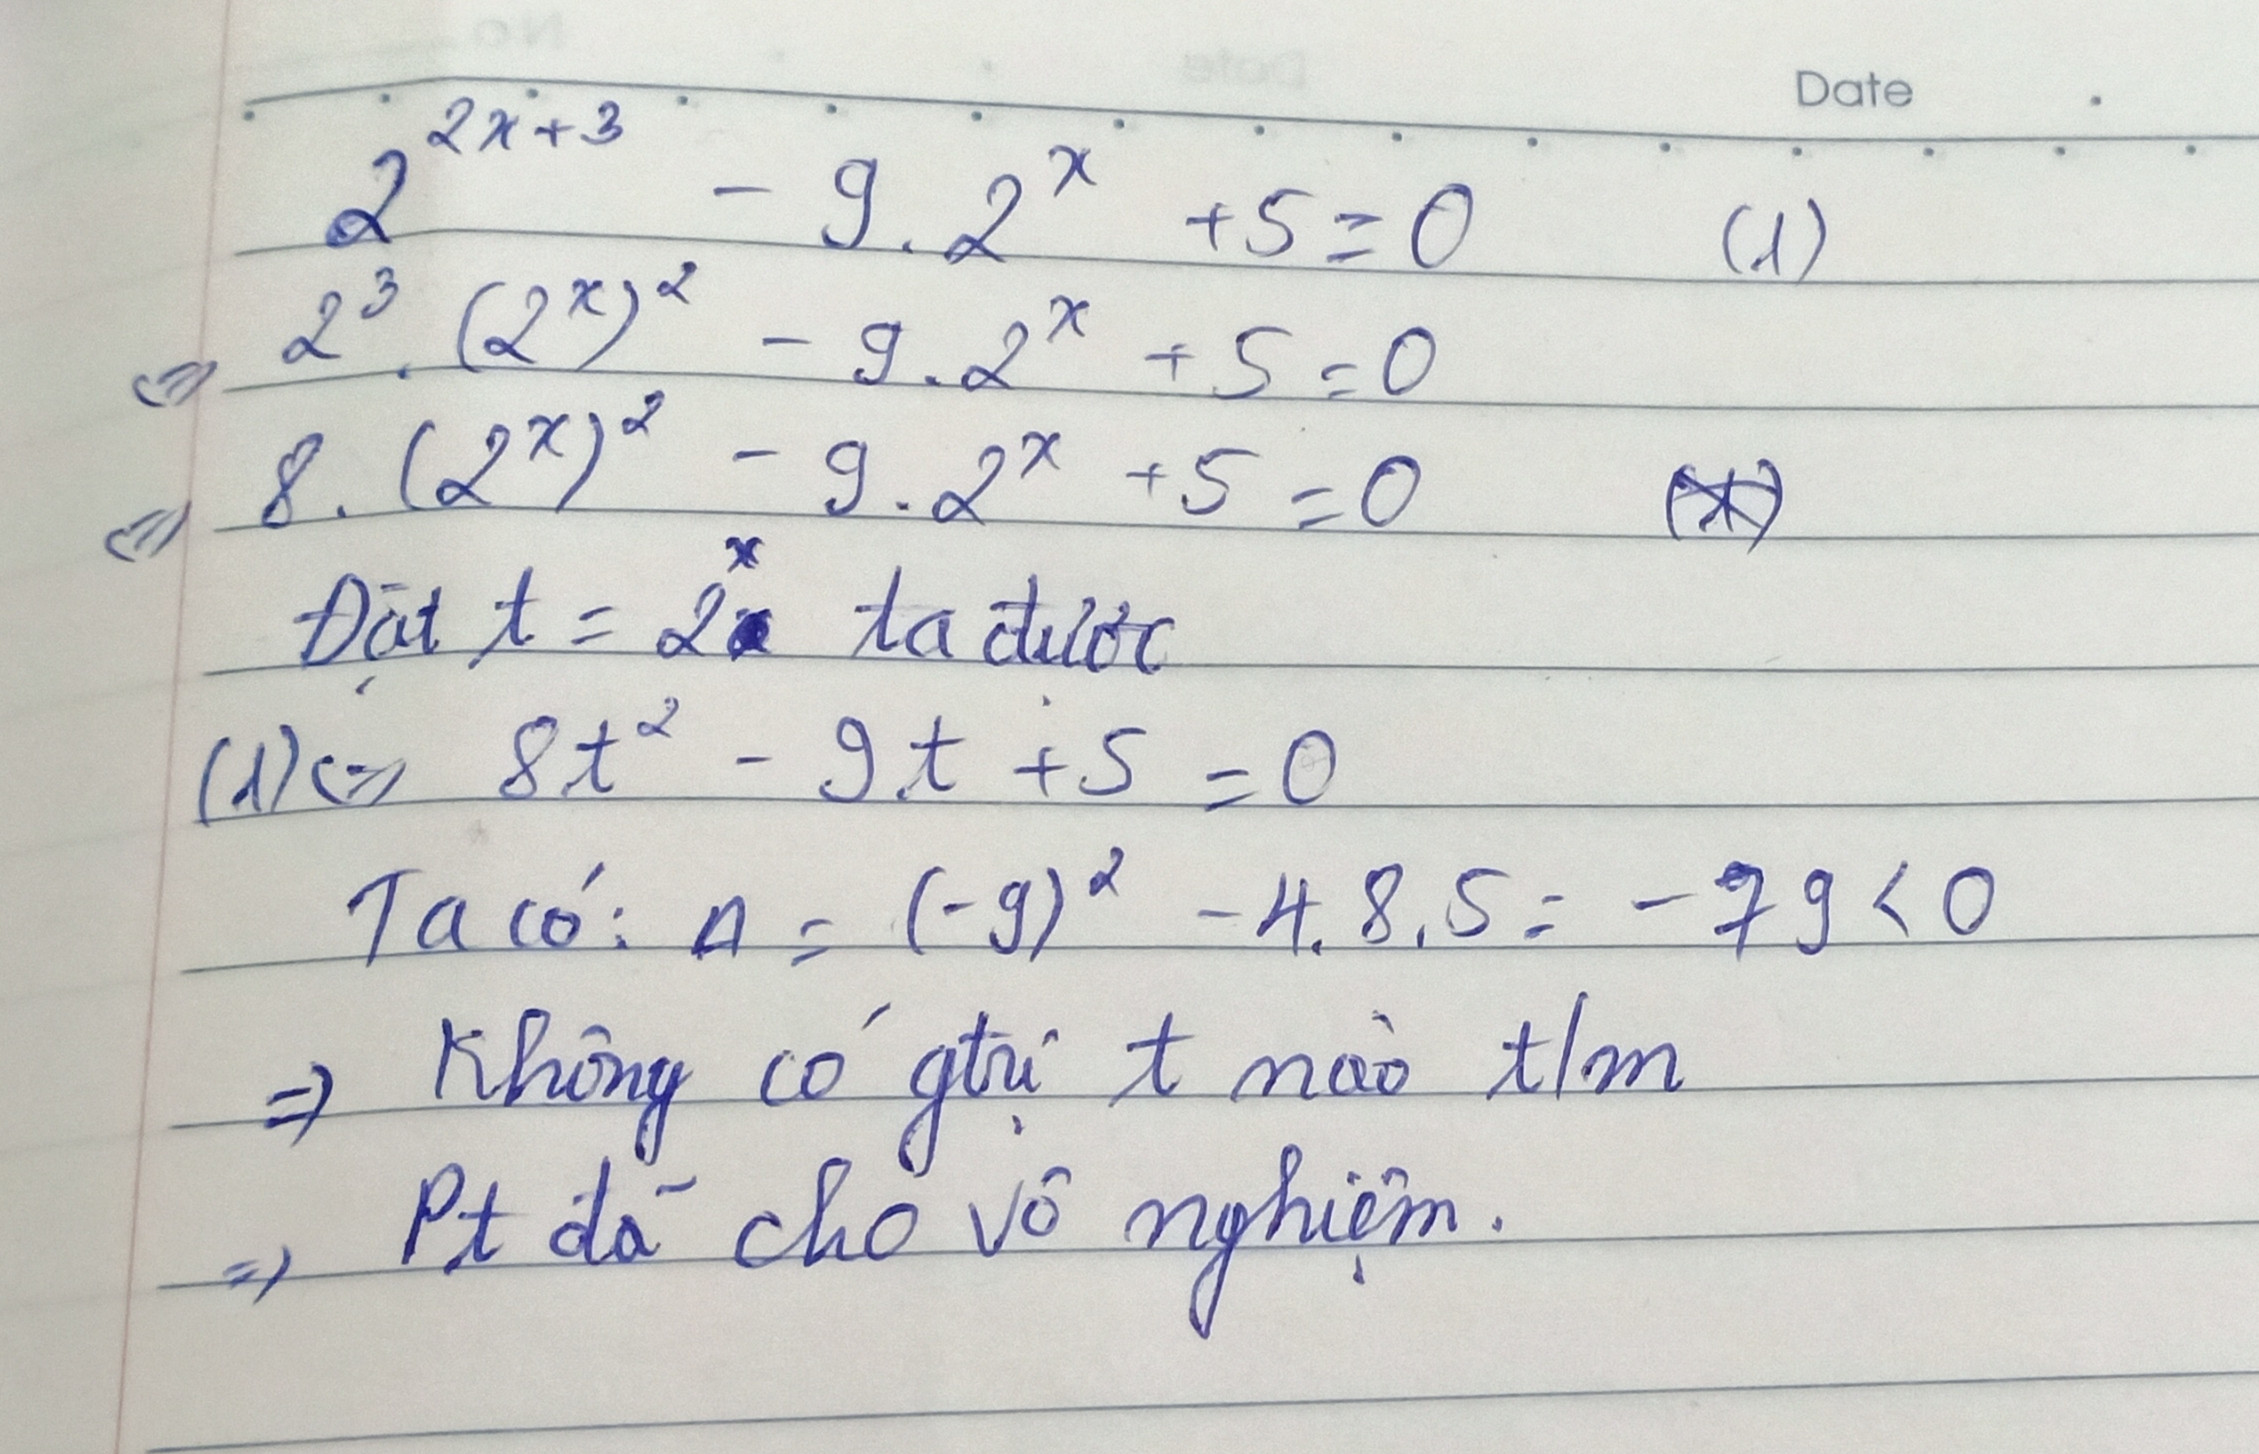 Date
2^{2x+3} - 9 . 2^x + 5 = 0 (1)
⇔ 2^3 . (2^x)^2 - 9 . 2^x + 5 = 0
⇔ 8 . (2^x)^2 - 9 . 2^x + 5 = 0
Đặt t = 2^x ta được
(1) ⇔ 8t^2 - 9t + 5 = 0
Ta có: Δ = (-9)^2 - 4.8.5 = -79 < 0
⇒ Không có gtrị t nào t/m
⇒ Pt đã cho vô nghiệm.